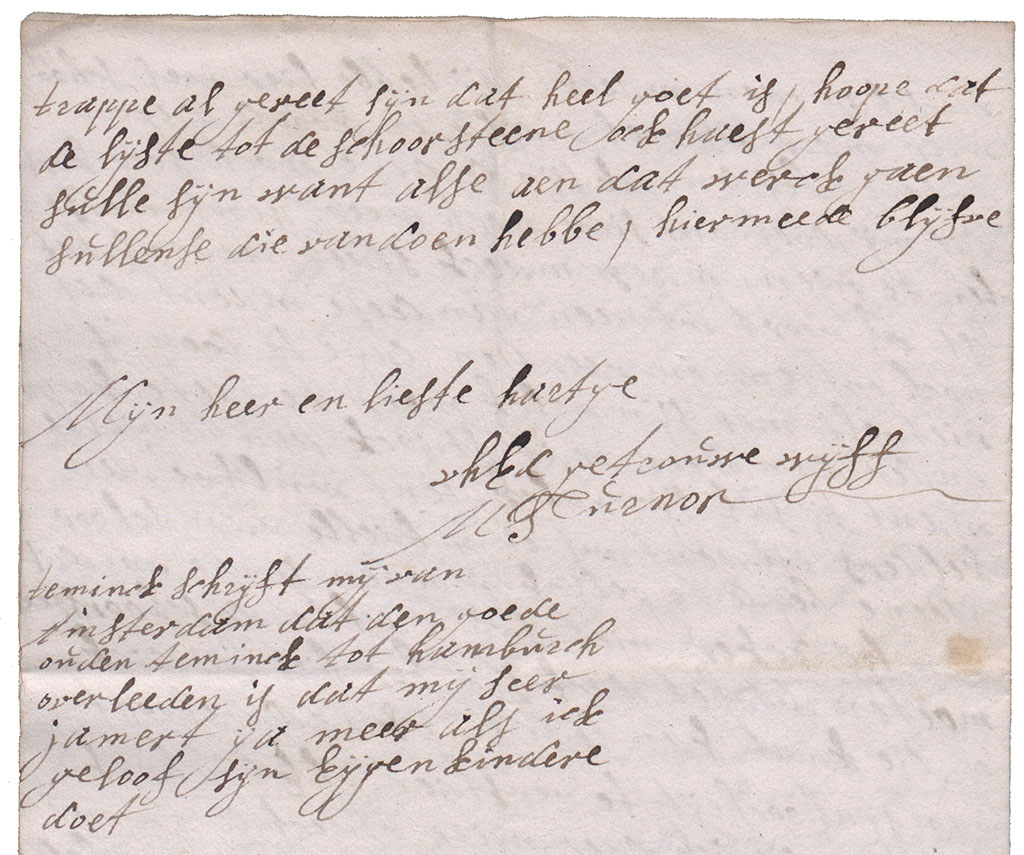 trappe al gereet sijn dat heel goet is, hoope dat
de lijste tot de schoorsteene ock haest gereet
sulle sijn want alse aen dat werck gaen
sullense die van doen hebbe, hiermeede blijfve
Mijn heer en liefste hartje
getrouwe wijff
M Turnor
teminck schrijft mij van
Amsterdam dat den goede
ouden teminck tot hamburch
overleeden is dat mij seer
jamert ja meer als ick
geloof sijn eijgen kindere
doet